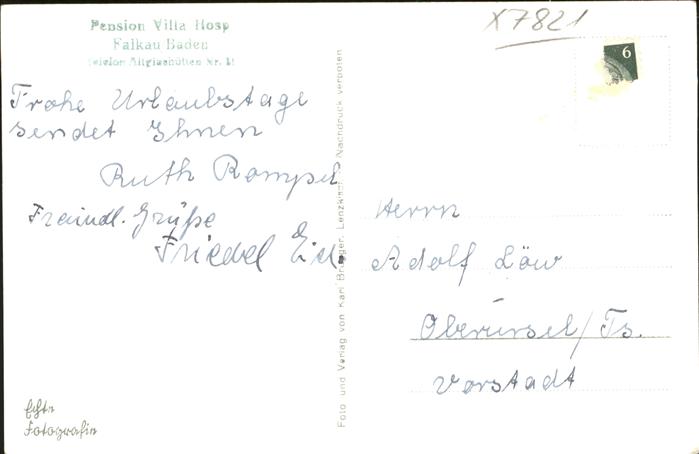 Pension Villa Hosp
Falkau Baden
Telefon Altglashütten Nr. 
X7821
6
Frohe Urlaubstage
sendet Ihnen
Ruth Rompel
Freundl. Grüße
Friedel
Herrn
Adolf Löw
Oberursel/Ts.
Vorstadt
Foto und Verlag von Karl Brugger, Lenzkirch Nachdruck verboten
Echte
Fotografie